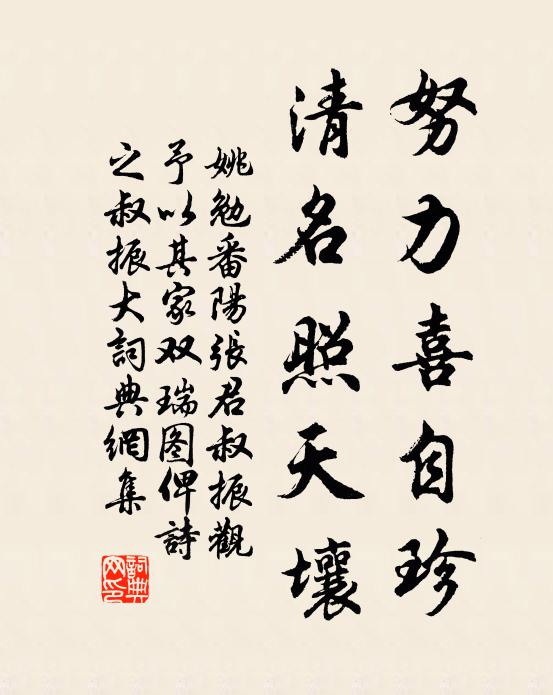 努力喜自珍
清名照天壤
姚勉番陽張君叔振觀
予以其家双瑞图俾詩
之叔振大詞典網集
詞典网印